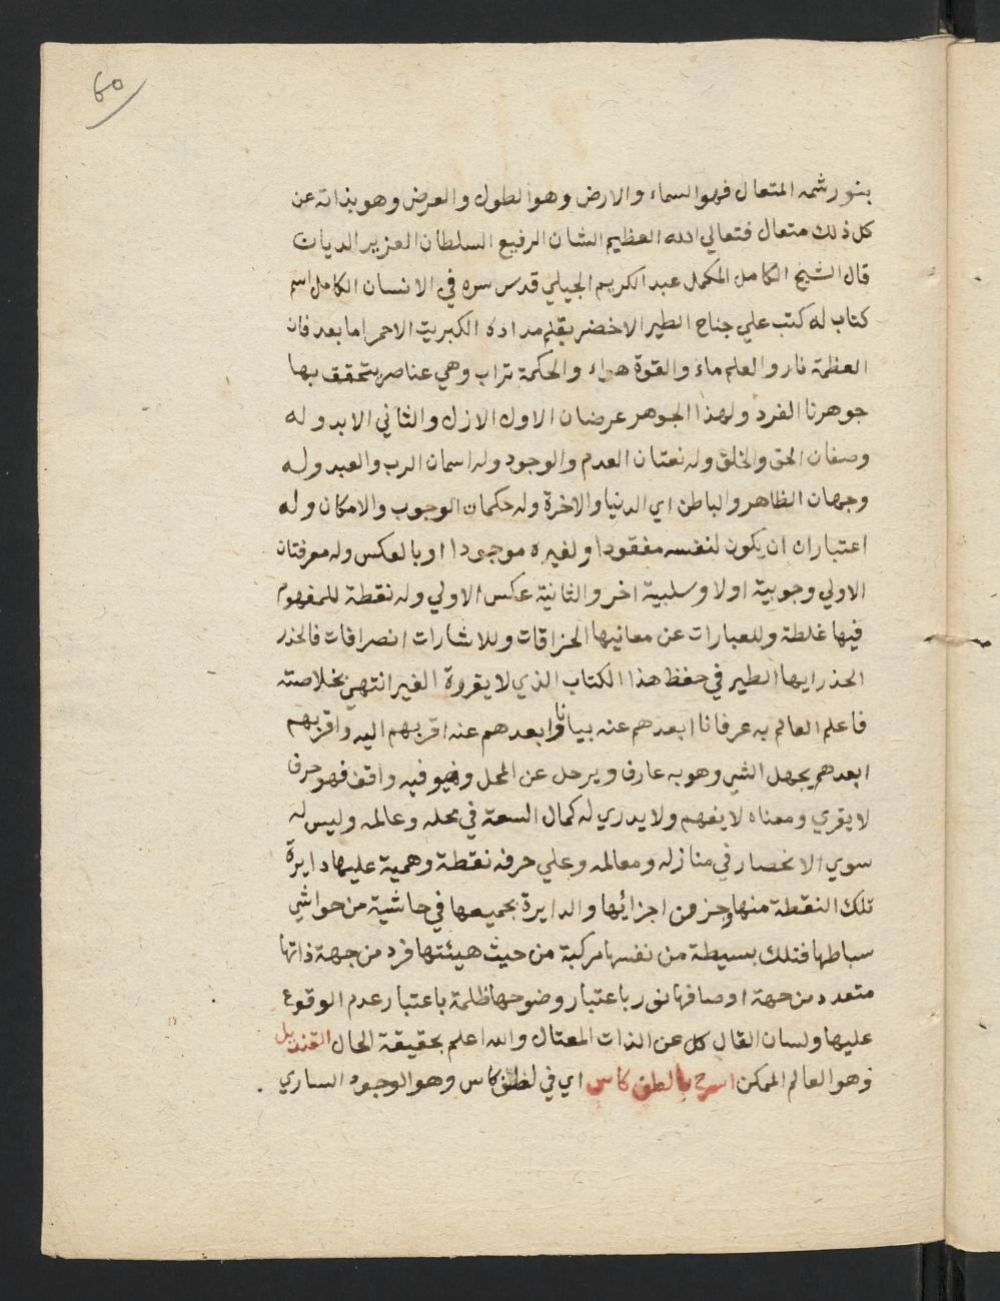 60
بنور شمه المتعال فهو السماء والارض وهو الطول والعرض وهو بذاته عن
كل ذلك متعال فتعالي الله العظيم الشان الرفيع السلطان العزيز الديان
قال الشيخ الكامل المكمل عبد الكريم الجيلي قدس سره في الانسان الكامل اسم
كتاب له كتب علي جناح الطير الاخضر بقلم مداده الكبريت الاحمر اما بعد فان
العظمة نار والعلم ماء والقوة هواء والحكمة تراب وهي عناصر يتحقق بها
جوهرنا الفرد ولهذا الجوهر عرضان الاول الازل والثاني الابد وله
وصفان الحق والخلق وله نعتان العدم والوجود وله اسمان الرب والعبد وله
وجهان الظاهر والباطن اي الدنيا والاخرة وله حكمان الوجوب والامكان وله
اعتباران ان يكون لنفسه مفقودا ولغيره موجودا او بالعكس وله معرفتان
الاولي وجوبية اولا وسلبية اخر والثانية عكس الاولي وله نقطة للمفهوم
فيها غلطة وللعبارات عن معانيها انحرافات وللاشارات انصرافات فالحذر
الحذر ايها الطير في حفظ هذا الكتاب الذي لا يقروة الغير انتهي بخلاصته
فاعلم العالم به عرفانا ابعدهم عنه بيانا وابعدهم عنه اقربهم اليه واقربهم
ابعدهم يجهل الشي وهو به عارف ويرحل عن المحل وهو فيه واقف فهو حرف
لا يقري ومعناه لا يفهم ولا يدري له كمال السعة في محله وعالمه وليس له
سوي الانحصار في منازله ومعالمه وعلي حرفه نقطة وهمية عليها دايرة
تلك النقطة منها وجزء من اجزائها والدايرة بجميعها في حاشية من حواشي
سباطها فتلك بسيطة من نفسها مركبة من حيث هيئتها فرد من جهة ذاتها
متعدد من جهة اوصافها نور باعتبار وضوحها ظلمة باعتبار عدم الوقوع
عليها ولسان القال كل عن الذات المعتال والله اعلم بحقيقة الحال القنديل
وهو العالم الممكن اسرج بالطف كاس اي في لطف كاس وهو الوجود الساري